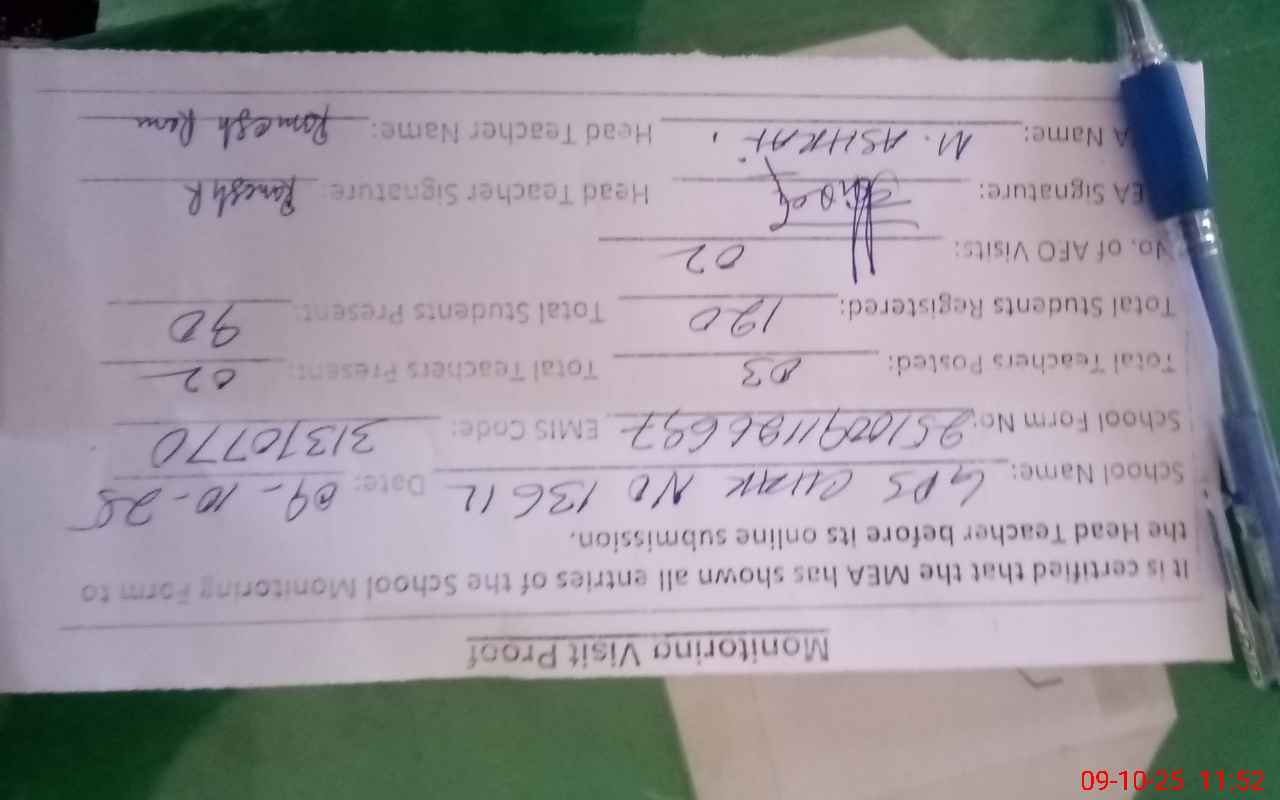 Monitoring Visit Proof
It is certified that the MEA has shown all entries of the School Monitoring Form to
the Head Teacher before its online submission.
School Name: GPS CHAK NO 136 1L Date: 09-10-25
School Form No: EMIS Code: 31310770
Total Teachers Posted: 03 Total Teachers Present: 02
Total Students Registered: 120 Total Students Present: 90
No. of AEO Visits: 02
EA Signature: Head Teacher Signature: Ramesh R
A Name: M. ASHRAF Head Teacher Name: Ramesh Ram
09-10-25 11:52